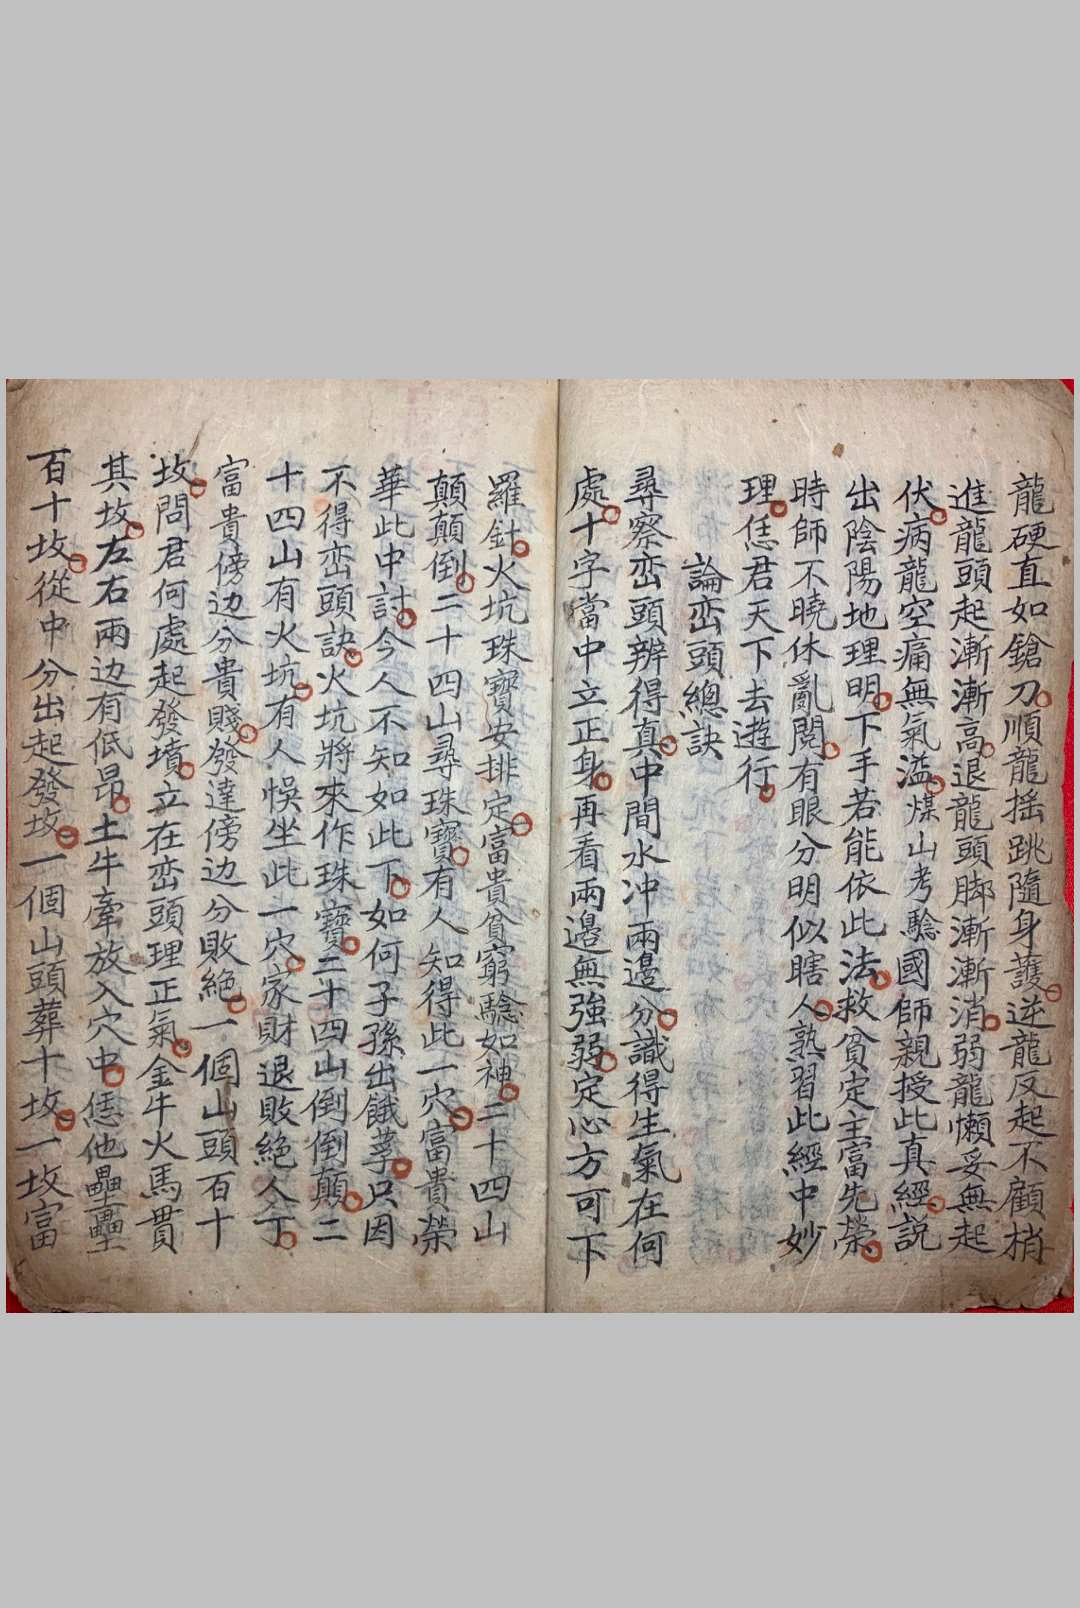 龍硬直如鎗刀順龍摇跳隨身護逆龍反起不顧梢
進龍頭起漸漸高退龍頭脚漸漸消弱龍懶妥無起
伏病龍空痛無氣溢煤山考驗國師親授此真經説
出陰陽地理明下手若能依此法救貧定主富先榮
時師不曉休亂閱有眼分明似瞎人熟習此經中妙
理恁君天下去遊行
論峦頭總訣
尋察峦頭辨得真中間水冲兩邊分識得生氣在何
處十字當中立正身再看兩邉無強弱定心方可下
羅針火坑珠寶安排定富貴貧窮驗如神二十四山
顛顛倒二十四山尋珠寶有人知得此一穴富貴榮
華此中討今人不知如此下如何子孫出餓莩只因
不得峦頭訣火坑將來作珠寶二十四山倒倒顛二
十四山有火坑有人悮坐此一穴家財退敗絶人丁
富貴傍边分貴賤發達傍边分敗絶一個山頭百十
坟問君何處起發墳立在峦頭理正氣金牛火馬貫
其坟左右兩边有低昂土牛牽放入穴中恁他壘壘
百十坟從中分出起發坟一個山頭葬十坟一坟富